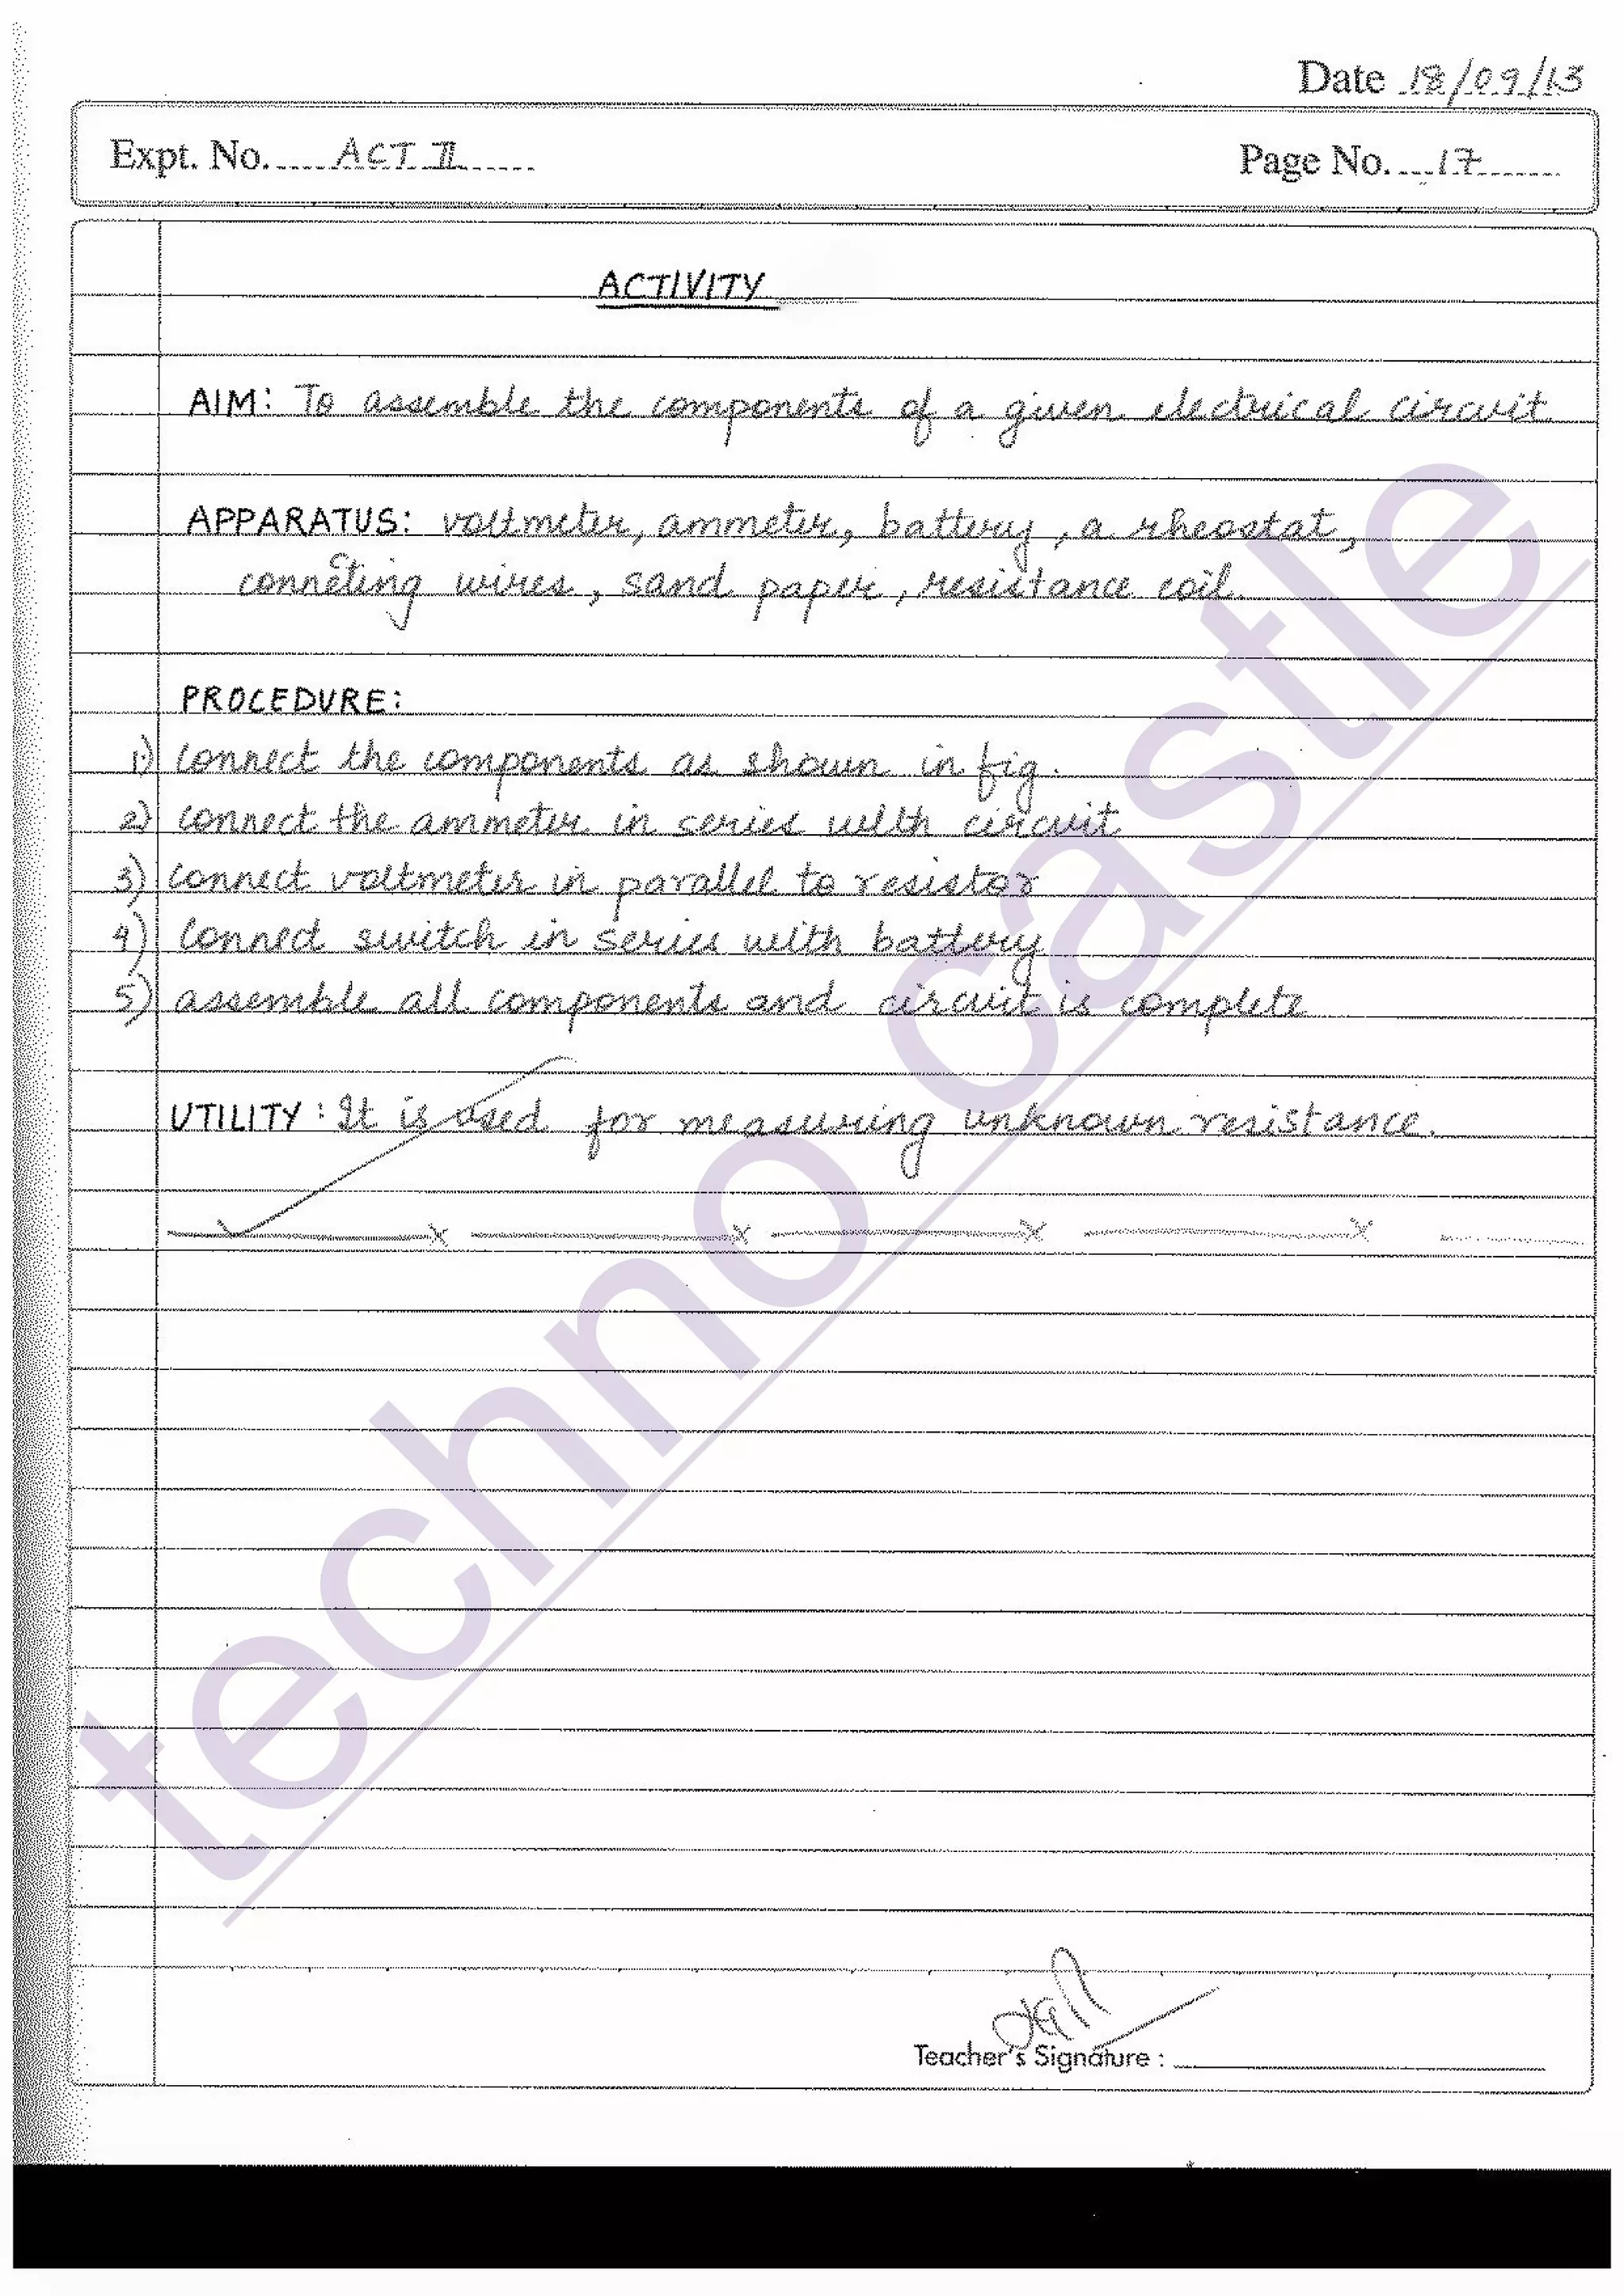 Date 18/09/13
Expt. No. ACT II
Page No. 17
ACTIVITY
AIM: To assemble the components of a given electrical circuit
APPARATUS: voltmeter, ammeter, battery, a rheostat,
conneting wires, sand paper, resistance coil.
PROCEDURE:
1) Connect the components as shown in fig.
2) connect the ammeter in series with circuit
3) connect voltmeter in parallel to resistor
4) Connect switch in series with battery
5) assemble all components and circuit is complete
UTILITY: It is used for measuring unknown resistance.
techno castle
Teacher's Signature :